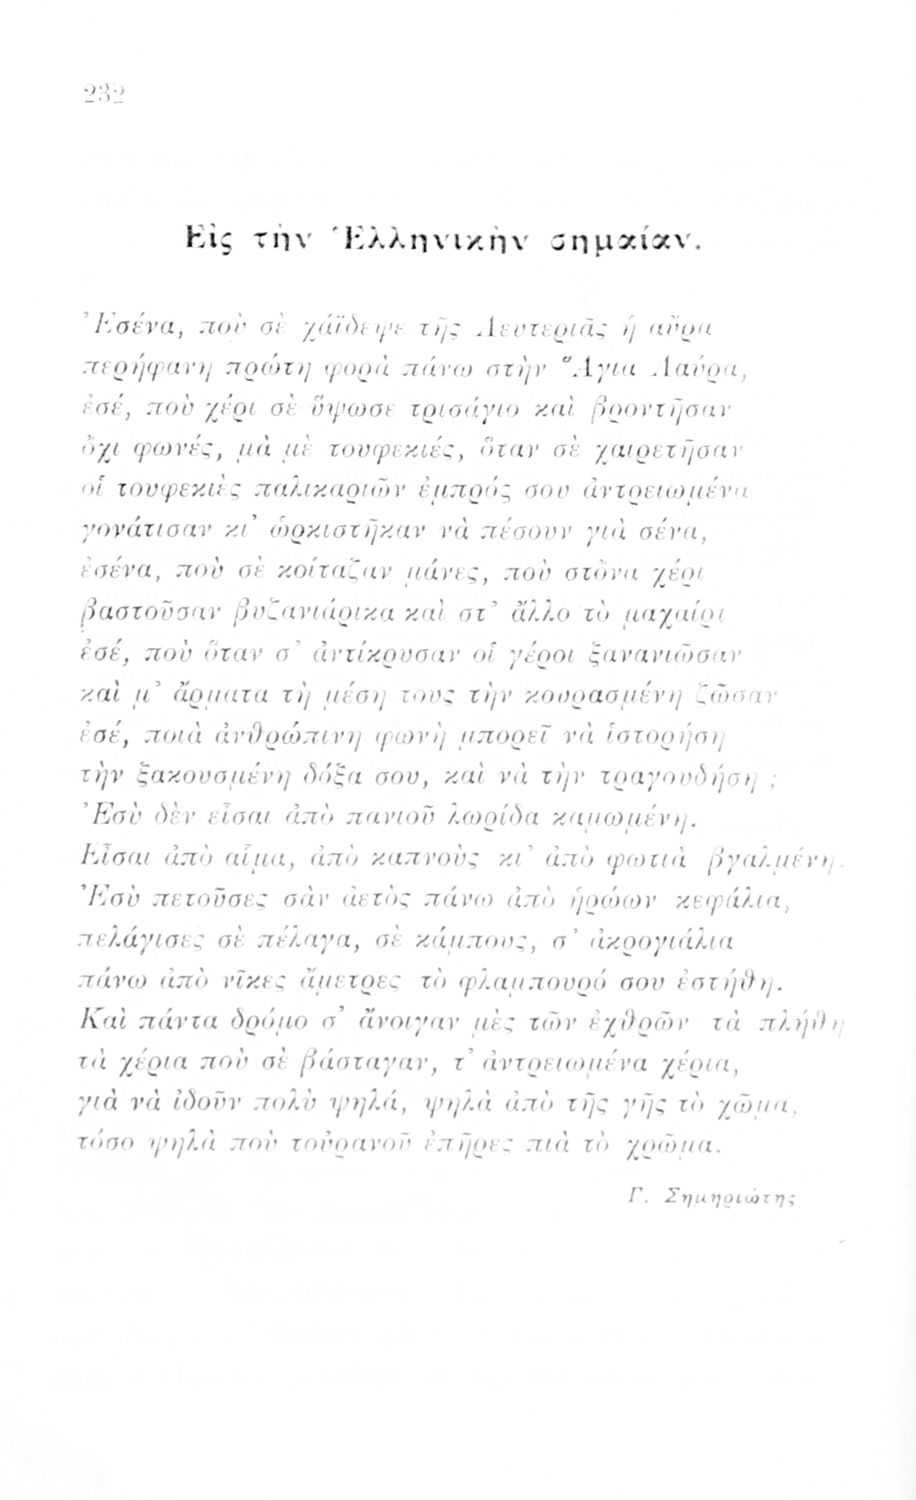 232
Εἰς τὴν Ἑλληνικὴν σημαίαν.
Ἐσένα, ποὺ σὲ χάϊδεψε τῆς Λευτεριᾶς ἡ αὔρα
περήφανη πρώτη φορὰ πάνω στὴν Ἅγια Λαύρα,
ἐσέ, ποὺ χέρι σὲ ὕψωσε τρισάγιο καὶ βροντῆσαν
ὄχι φωνές, μὰ μὲ τουφεκιές, ὅταν σὲ χαιρετῆσαν
οἱ τουφεκιὲς παλικαριῶν ἐμπρός σου ἀντρειωμένα
γονάτισαν κι᾿ ὡρκιστῆκαν νὰ πέσουν γιὰ σένα,
ἐσένα, ποὺ σὲ κοίταζαν μάνες, ποὺ στὄνα χέρι
βαστοῦσαν βυζανιάρικα καὶ στ᾿ ἄλλο τὸ μαχαίρι
ἐσέ, ποὺ ὅταν σ᾿ ἀντίκρυσαν οἱ γέροι ξανανιῶσαν
καὶ μ᾿ ἄρματα τὴ μέση τους τὴν κουρασμένη ζῶσαν
ἐσέ, ποιὰ ἀνθρώπινη φωνὴ μπορεῖ νὰ ἱστορήση
τὴν ξακουσμένη δόξα σου, καὶ νὰ τὴν τραγουδήση ;
Ἐσὺ δὲν εἶσαι ἀπὸ πανιοῦ λωρίδα καμωμένη.
Εἶσαι ἀπὸ αἷμα, ἀπὸ καπνοὺς κι᾿ ἀπὸ φωτιὰ βγαλμένη.
Ἐσὺ πετοῦσες σὰν ἀετὸς πάνω ἀπὸ ἡρώων κεφάλια,
πελάγισες σὲ πέλαγα, σὲ κάμπους, σ᾿ ἀκρογιάλια
πάνω ἀπὸ νῖκες ἄμετρες τὸ φλαμπουρό σου ἐστήθη.
Καὶ πάντα δρόμο σ᾿ ἄνοιγαν μὲς τῶν ἐχθρῶν τὰ πλήθη
τὰ χέρια ποὺ σὲ βάσταγαν, τ᾿ ἀντρειωμένα χέρια,
γιὰ νὰ ἰδοῦν πολὺ ψηλά, ψηλὰ ἀπὸ τῆς γῆς τὸ χῶμα,
τόσο ψηλὰ ποὺ τοὐρανοῦ ἐπῆρες πιὰ τὸ χρῶμα.
Γ. Σημηριώτης